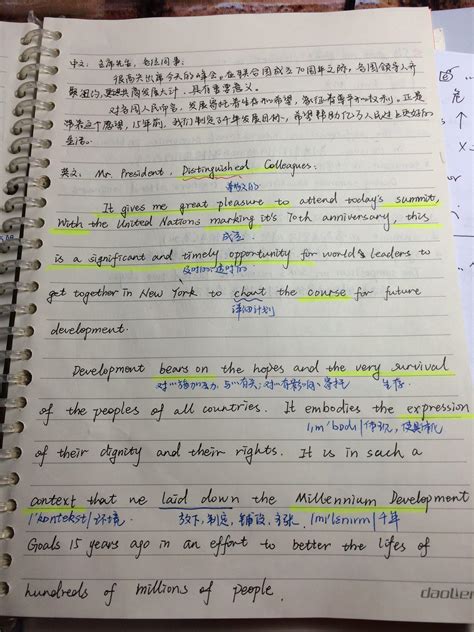 中文：主席先生，各位同事：
很高兴出席今天的峰会。在联合国成立70周年之际，各国领导人齐
聚纽约，共商发展大计，具有重要意义。
对各国人民而言，发展寄托着生存和希望，象征着尊严和权利。正是
带着这个愿望，15年前，我们制定了千年发展目标，希望帮助亿万人民过上更好的
生活。
危
英文： Mr. President, Distinguished Colleagues:
尊敬的
It gives me great pleasure to attend today's summit,
With the United Nations marking it's 70th anniversary, this
成立
is a significant and timely opportunity for world's leaders to
及时的，适时的
get together in New York to chart the course for future
详细计划
development.
Development bears on the hopes and the very survival
生存
of the peoples of all countries. It embodies the expression
/ɪm'bɒdɪ/体现，使具体化
of their dignity and their rights. It is in such a
context that we laid down the Millennium Development
/'kɒntekst/环境 放下，制定，铺设，主张 /mɪ'lenɪəm/千年
Goals 15 years ago in an effort to better the lives of
hundreds of millions of people.